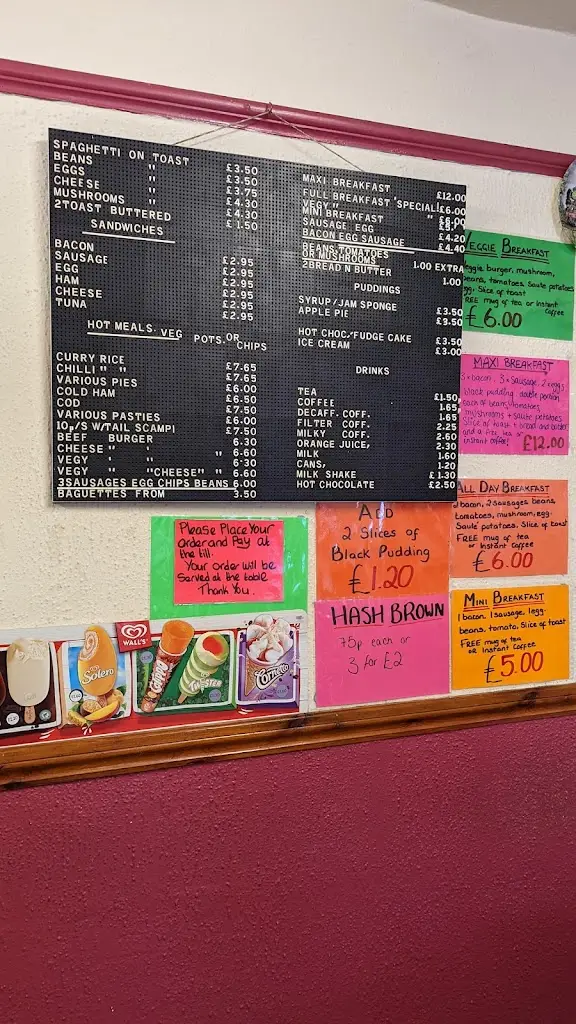 SPAGHETTI ON TOAST £3.50
BEANS " £3.50
EGGS " £3.75
CHEESE " £4.30
MUSHROOMS " £4.30
2TOAST BUTTERED £1.50
SANDWICHES
BACON £2.95
SAUSAGE £2.95
EGG £2.95
HAM £2.95
CHEESE £2.95
TUNA £2.95
HOT MEALS. VEG POTS. OR CHIPS
CURRY RICE £7.65
CHILLI " " £7.65
VARIOUS PIES £6.00
COLD HAM £6.50
COD £7.50
VARIOUS PASTIES £6.00
10p/S W/TAIL SCAMPI £7.50
BEEF BURGER 6.30
CHEESE " " 6.60
VEGY " 6.30
VEGY " "CHEESE" " 6.60
3SAUSAGES EGG CHIPS BEANS 6.00
BAGUETTES FROM 3.50
MAXI BREAKFAST £12.00
FULL BREAKFAST 'SPECIAL! £6.00
VEGY " " £6.00
MINI BREAKFAST
SAUSAGE EGG £4.20
BACON EGG SAUSAGE £4.40
BEANS, TOMATOES
OR MUSHROOMS 1.00 EXTRA
2BREAD N BUTTER 1.00
PUDDINGS
SYRUP/JAM SPONGE £3.50
APPLE PIE £9.50
HOT CHOC/FUDGE CAKE £3.50
ICE CREAM £3.00
DRINKS
TEA £1.50
COFFEE 1.65
DECAFF. COFF. 1.65
FILTER COFF. 2.25
MILKY COFF. 2.60
ORANGE JUICE, 2.30
MILK 1.60
CANS, 1.20
MILK SHAKE £1.30
HOT CHOCOLATE £2.50
VEGGIE BREAKFAST
Veggie burger, mushroom,
beans, tomatoes, Saute potatoes
egg, Slice of toast
FREE mug of tea or Instant
Coffee
£6.00
MAXI BREAKFAST
3 x bacon 3 x Sausage, 2 eggs
black pudding double portion
each of beans/tomatoes
mushrooms + saute potatoes
Slice of toast + bread and butter
and a free tea or
instant coffee!
£12.00
ALL DAY BREAKFAST
2 bacon, 2 sausages beans,
tomatoes, mushroom, egg.
Saute potatoes, Slice of toast
FREE mug of tea
or Instant Coffee
£6.00
MINI BREAKFAST
1 bacon, 1 sausage, 1 egg
beans, tomato, Slice of toast
FREE mug of tea
OR Instant Coffee
£5.00
ADD
2 Slices of
Black Pudding
£1.20
HASH BROWN
75p each or
3 for £2
Please Place Your
order and Pay at
the till.
Your order will be
Served at the table
Thank You.
WALL'S
Solero
CALIPPO
TWISTER
Cornetto